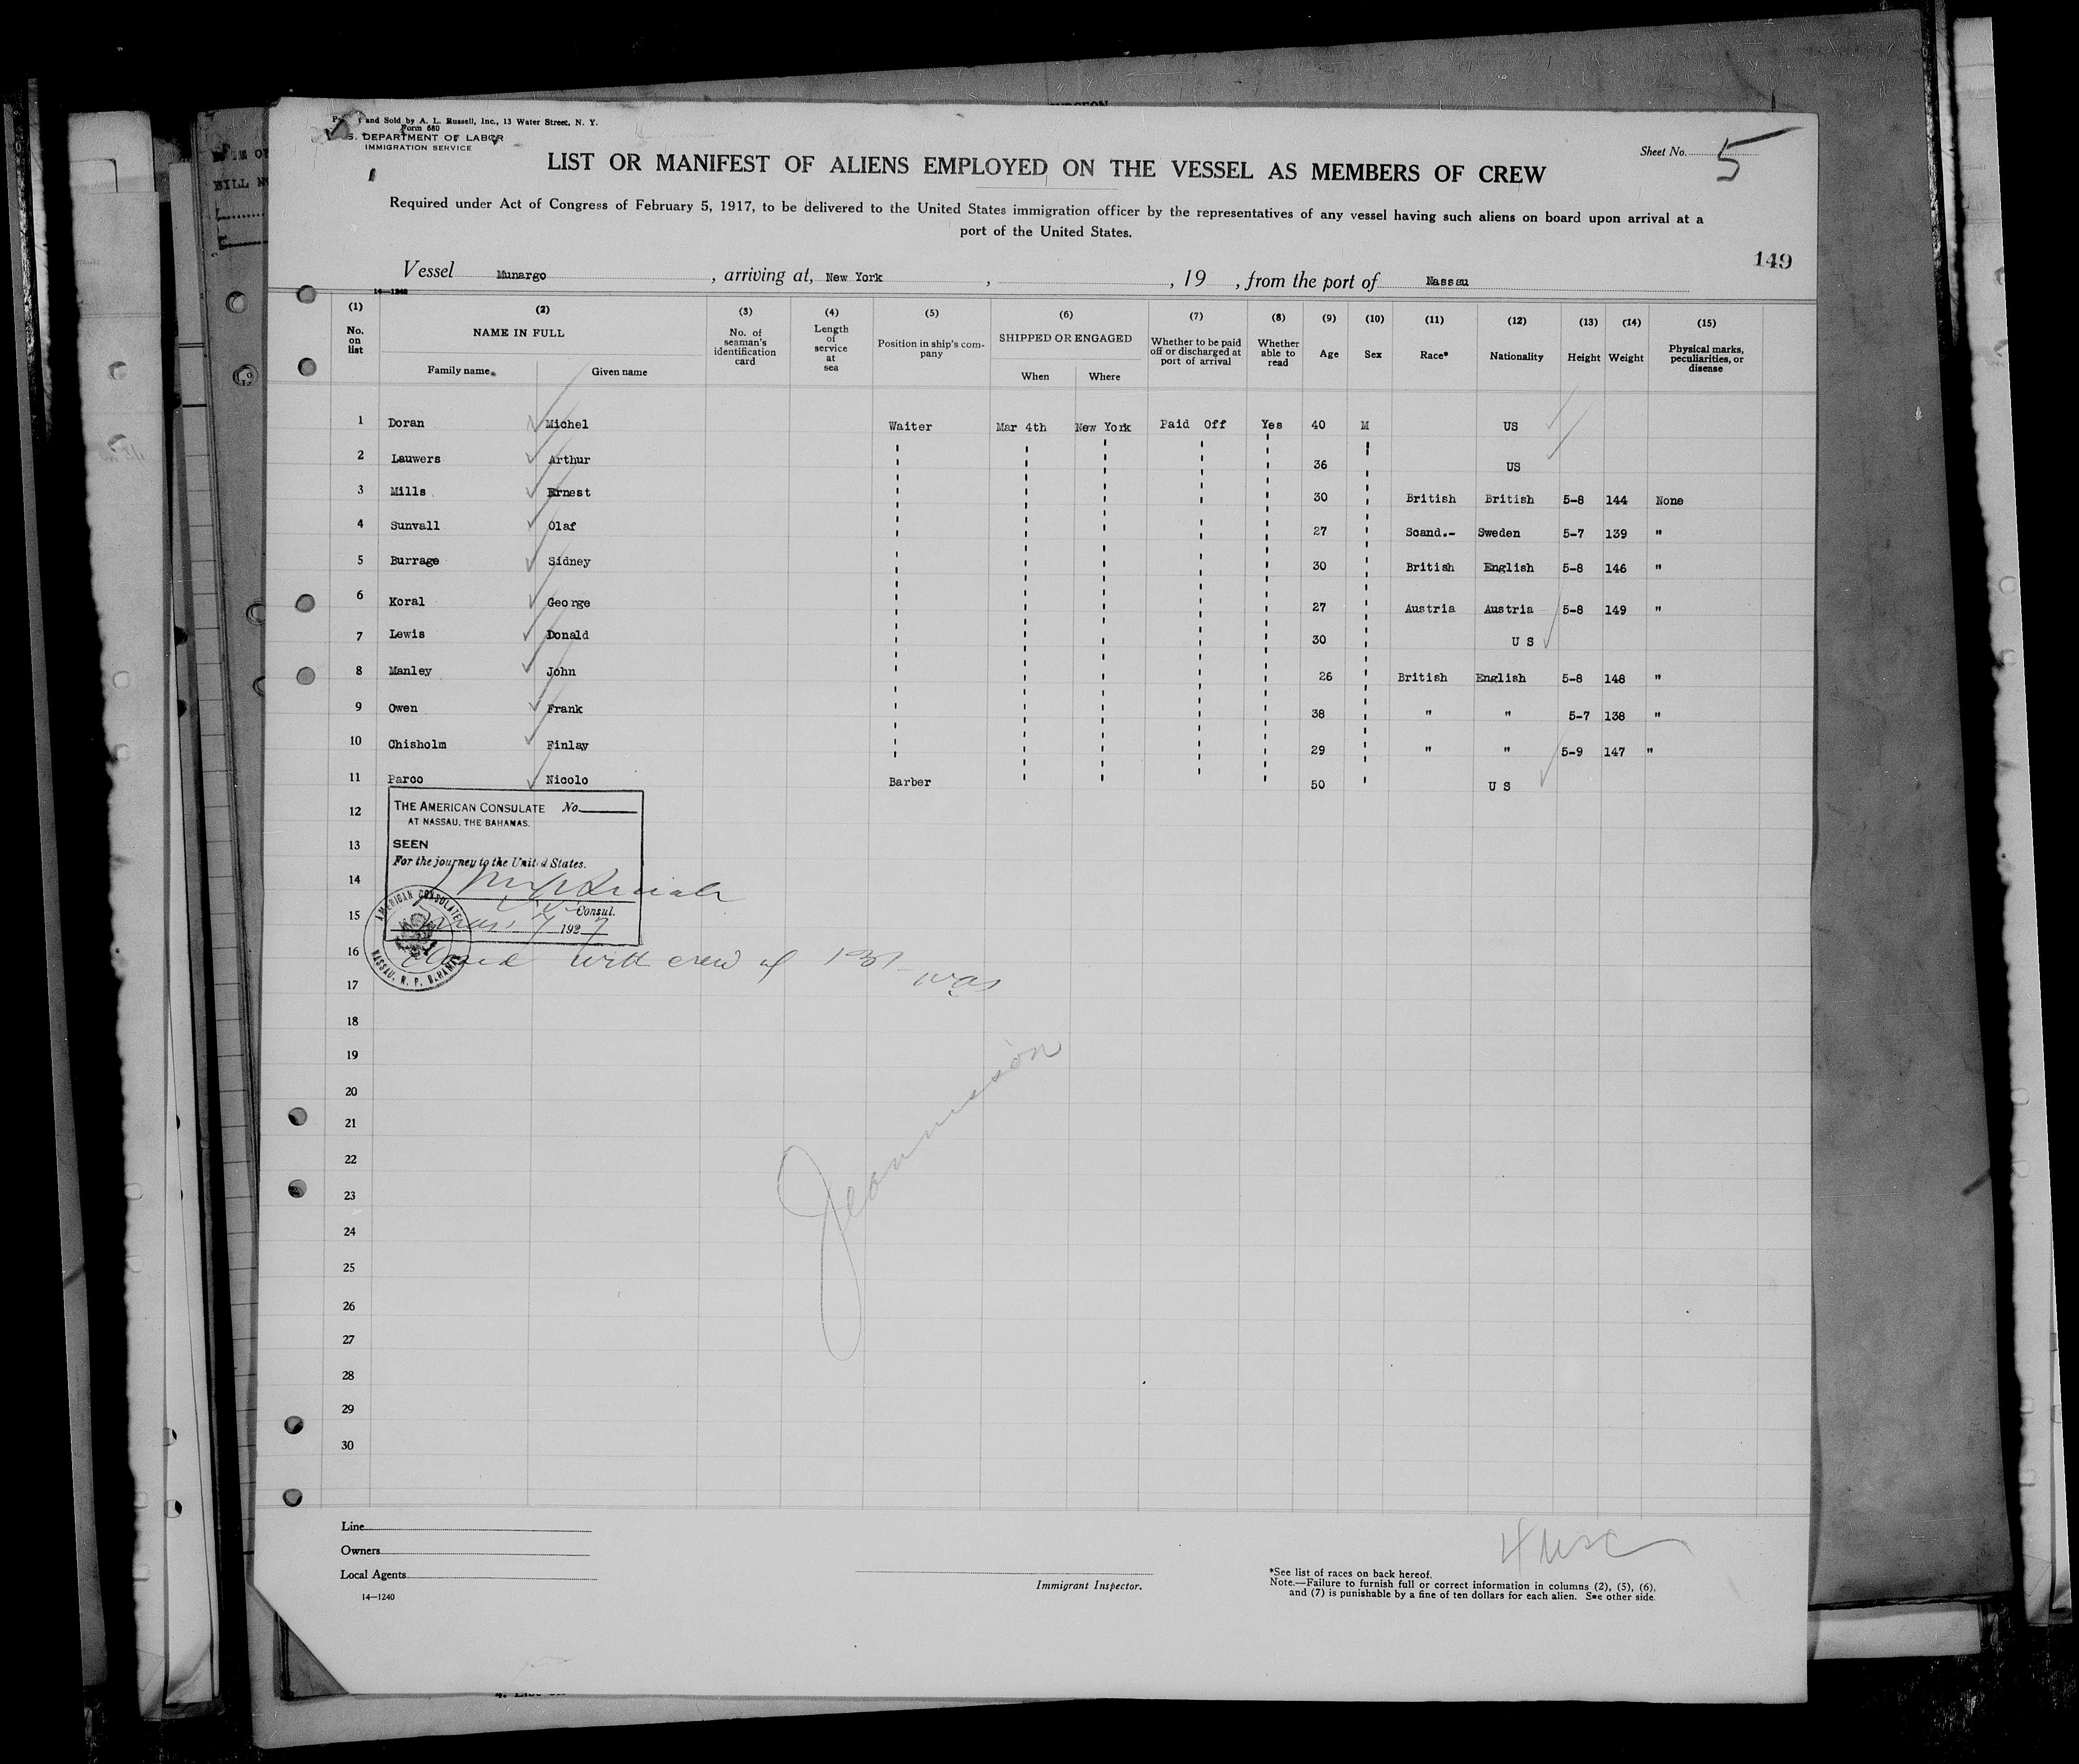 and Sold by A. L. Russell, Inc., 13 Water Street, N. Y.
Form 680
S. DEPARTMENT OF LABOR
IMMIGRATION SERVICE
Sheet No. 5
LIST OR MANIFEST OF ALIENS EMPLOYED ON THE VESSEL AS MEMBERS OF CREW
Required under Act of Congress of February 5, 1917, to be delivered to the United States immigration officer by the representatives of any vessel having such aliens on board upon arrival at a
port of the United States.
149
Vessel Munargo, arriving at, New York, , 19 , from the port of Nassau
14—1240
(1) (2) (3) (4) (5) (6) (7) (8) (9) (10) (11) (12) (13) (14) (15)
No. on list NAME IN FULL No. of seaman's identification card Length of service at sea Position in ship's company SHIPPED OR ENGAGED Whether to be paid off or discharged at port of arrival Whether able to read Age Sex Race* Nationality Height Weight Physical marks, peculiarities, or disease
Family name Given name When Where
1 Doran Michel Waiter Mar 4th New York Paid Off Yes 40 M US
2 Lauwers Arthur " " " " " 36 " US
3 Mills Ernest " " " " " 30 " British British 5-8 144 None
4 Sunvall Olaf " " " " " 27 " Scand.- Sweden 5-7 139 "
5 Burrage Sidney " " " " " 30 " British English 5-8 146 "
6 Koral George " " " " " 27 " Austria Austria 5-8 149 "
7 Lewis Donald " " " " " 30 " U S
8 Manley John " " " " " 26 " British English 5-8 148 "
9 Owen Frank " " " " " 38 " " " 5-7 138 "
10 Chisholm Finlay " " " " " 29 " " " 5-9 147 "
11 Parco Nicolo Barber " " " " 50 " U S
12
13
14
15
16
17
18
19
20
21
22
23
24
25
26
27
28
29
30
THE AMERICAN CONSULATE No.
AT NASSAU, THE BAHAMAS.
SEEN
For the journey to the United States.
Consul.
Mar. 7 1927
AMERICAN CONSULATE
NASSAU, N. P. BAHAMAS
with crew of 131
Line
Owners
Local Agents
14—1240
Immigrant Inspector.
4 USC
*See list of races on back hereof.
Note.—Failure to furnish full or correct information in columns (2), (5), (6),
and (7) is punishable by a fine of ten dollars for each alien. See other side.